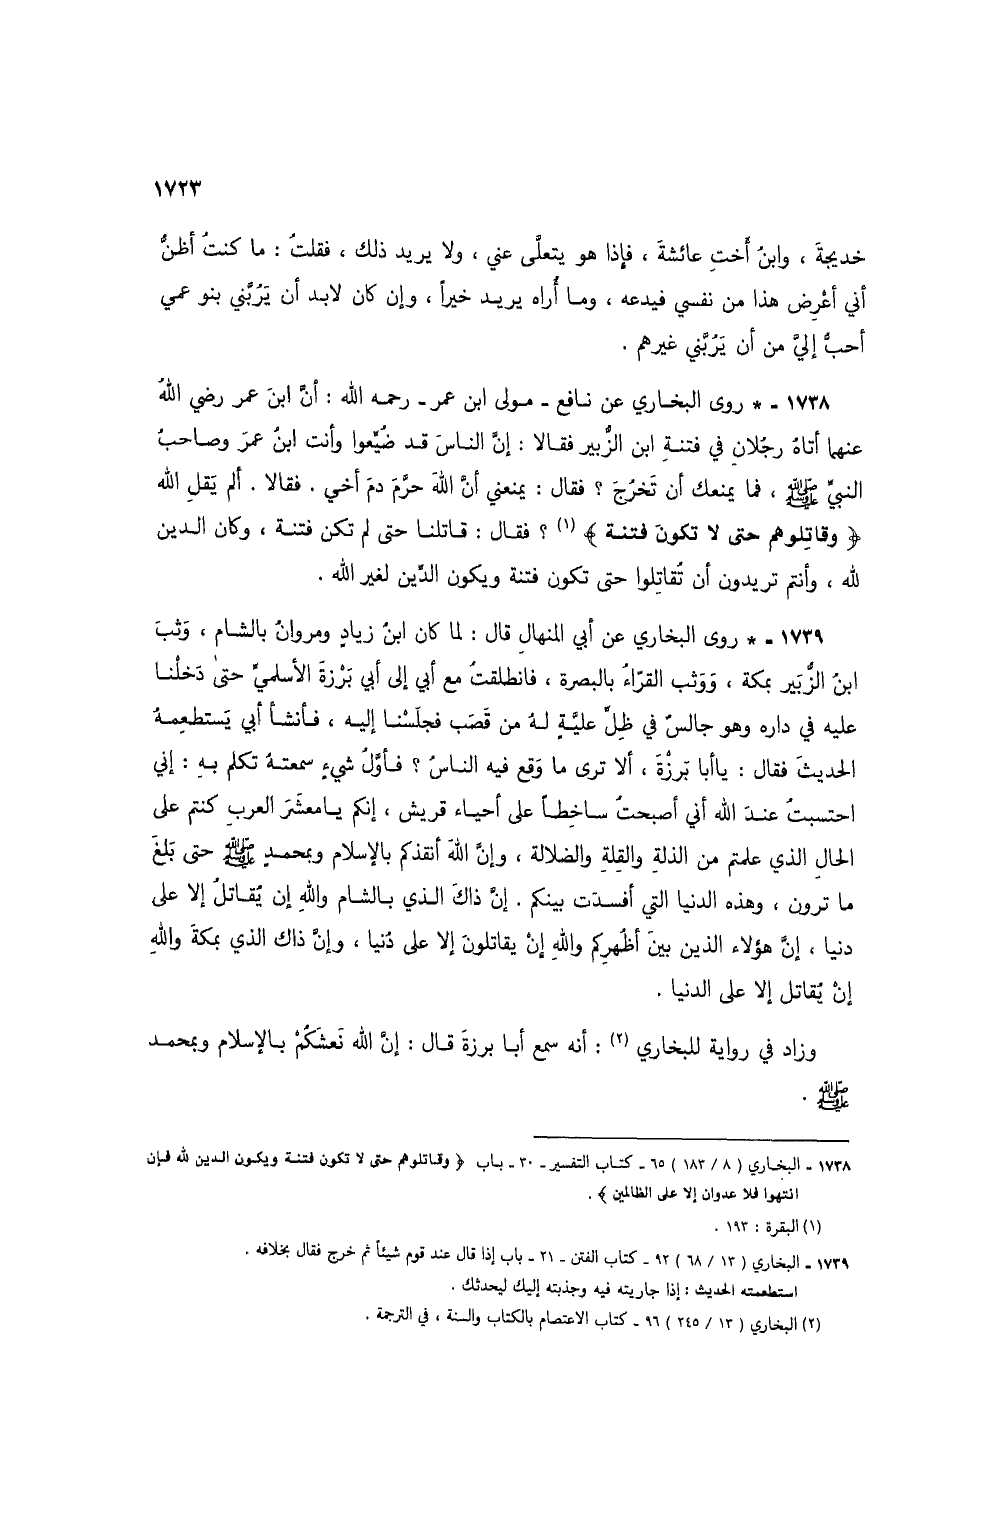 ١٧٢٣
خديجةَ ، وابنُ أختِ عائشةَ ، فإذا هو يتعلَّى عني ، ولا يريد ذلك ، فقلتُ : ما كنتُ أظنُّ
أني أعْرِض هذا من نفسي فيدعه ، وما أُراه يريد خيراً ، وإن كان لابد أن يَرُبَّني بنو عمي
أحبُّ إليَّ من أن يَرُبَّني غيرهم .
١٧٣٨ - * روى البخاري عن نافع - مولى ابن عمر - رحمه الله : أنَّ ابنَ عمر رضي اللهُ
عنهما أتاهُ رجُلانِ في فتنةِ ابن الزُّبير فقالا : إنَّ الناسَ قد ضُيِّعوا وأنت ابنُ عمرَ وصاحبُ
النبيِّ ﷺ ، فما يمنعك أن تَخرُجَ ؟ فقال : يمنعني أنَّ اللهَ حرَّمَ دمَ أخي . فقالا . ألم يَقلِ الله
﴿ وقاتِلوهم حتى لا تكونَ فتنة ﴾ (١) ؟ فقال : قاتلنا حتى لم تكن فتنة ، وكان الدين
لله ، وأنتم تريدون أن تُقاتِلوا حتى تكون فتنة ويكون الدِّين لغير الله .
١٧٣٩ - * روى البخاري عن أبي المنهال قال : لما كان ابنُ زيادٍ ومروانُ بالشام ، وَثبَ
ابنُ الزُّبَير بمكة ، وَوَثب القرّاءُ بالبصرة ، فانطلقتُ مع أبي إلى أبي بَرْزةَ الأسلميِّ حتىٰ دَخلْنا
عليه في داره وهو جالسٌ في ظِلِّ عليَّةٍ لهُ من قَصَب فجلَسْنا إليه ، فأنشأ أبي يَستطعِمهُ
الحديثَ فقال : ياأبا بَرزْةَ ، ألا ترى ما وَقع فيه الناسُ ؟ فأوَّلُ شيءٍ سمعتهُ تكلم بهِ : إني
احتسبتُ عندَ الله أني أصبحتُ ساخِطاً على أحياء قريش ، إنكم يامعشَرَ العربِ كنتم على
الحالِ الذي علمتم من الذلةِ والقلةِ والضلالة ، وإنَّ اللهَ أنقذكم بالإسلام وبمحمدٍ ﷺ حتى بَلغَ
ما ترون ، وهذه الدنيا التي أفسدَت بينكم . إنَّ ذاكَ الذي بالشام واللهِ إن يُقاتلُ إلا على
دنيا ، إنَّ هؤلاء الذين بينَ أظْهرِكم واللهِ إنْ يقاتلونَ إلا على دُنيا ، وإنَّ ذاك الذي بمكةَ واللهِ
إنْ يُقاتل إلا على الدنيا .
وزاد في رواية للبخاري (٢) : أنه سمع أبا برزةَ قال : إنَّ الله نَعشَكُمْ بالإسلام وبمحمد
ﷺ .
١٧٣٨ - البخاري ( ٨ / ١٨٣ ) ٦٥ - كتاب التفسير - ٣٠ - باب ﴿ وقاتلوهم حتى لا تكون فتنة ويكون الدين لله فإن
انتهوا فلا عدوان إلا على الظالمين ﴾ .
(١) البقرة : ١٩٣ .
١٧٣٩ - البخاري ( ١٣ / ٦٨ ) ٩٢ - كتاب الفتن - ٢١ - باب إذا قال عند قوم شيئاً ثم خرج فقال بخلافه .
استطعمته الحديث : إذا جاريته فيه وجذبته إليك ليحدثك .
(٢) البخاري ( ١٣ / ٢٤٥ ) ٩٦ - كتاب الاعتصام بالكتاب والسنة ، في الترجمة .